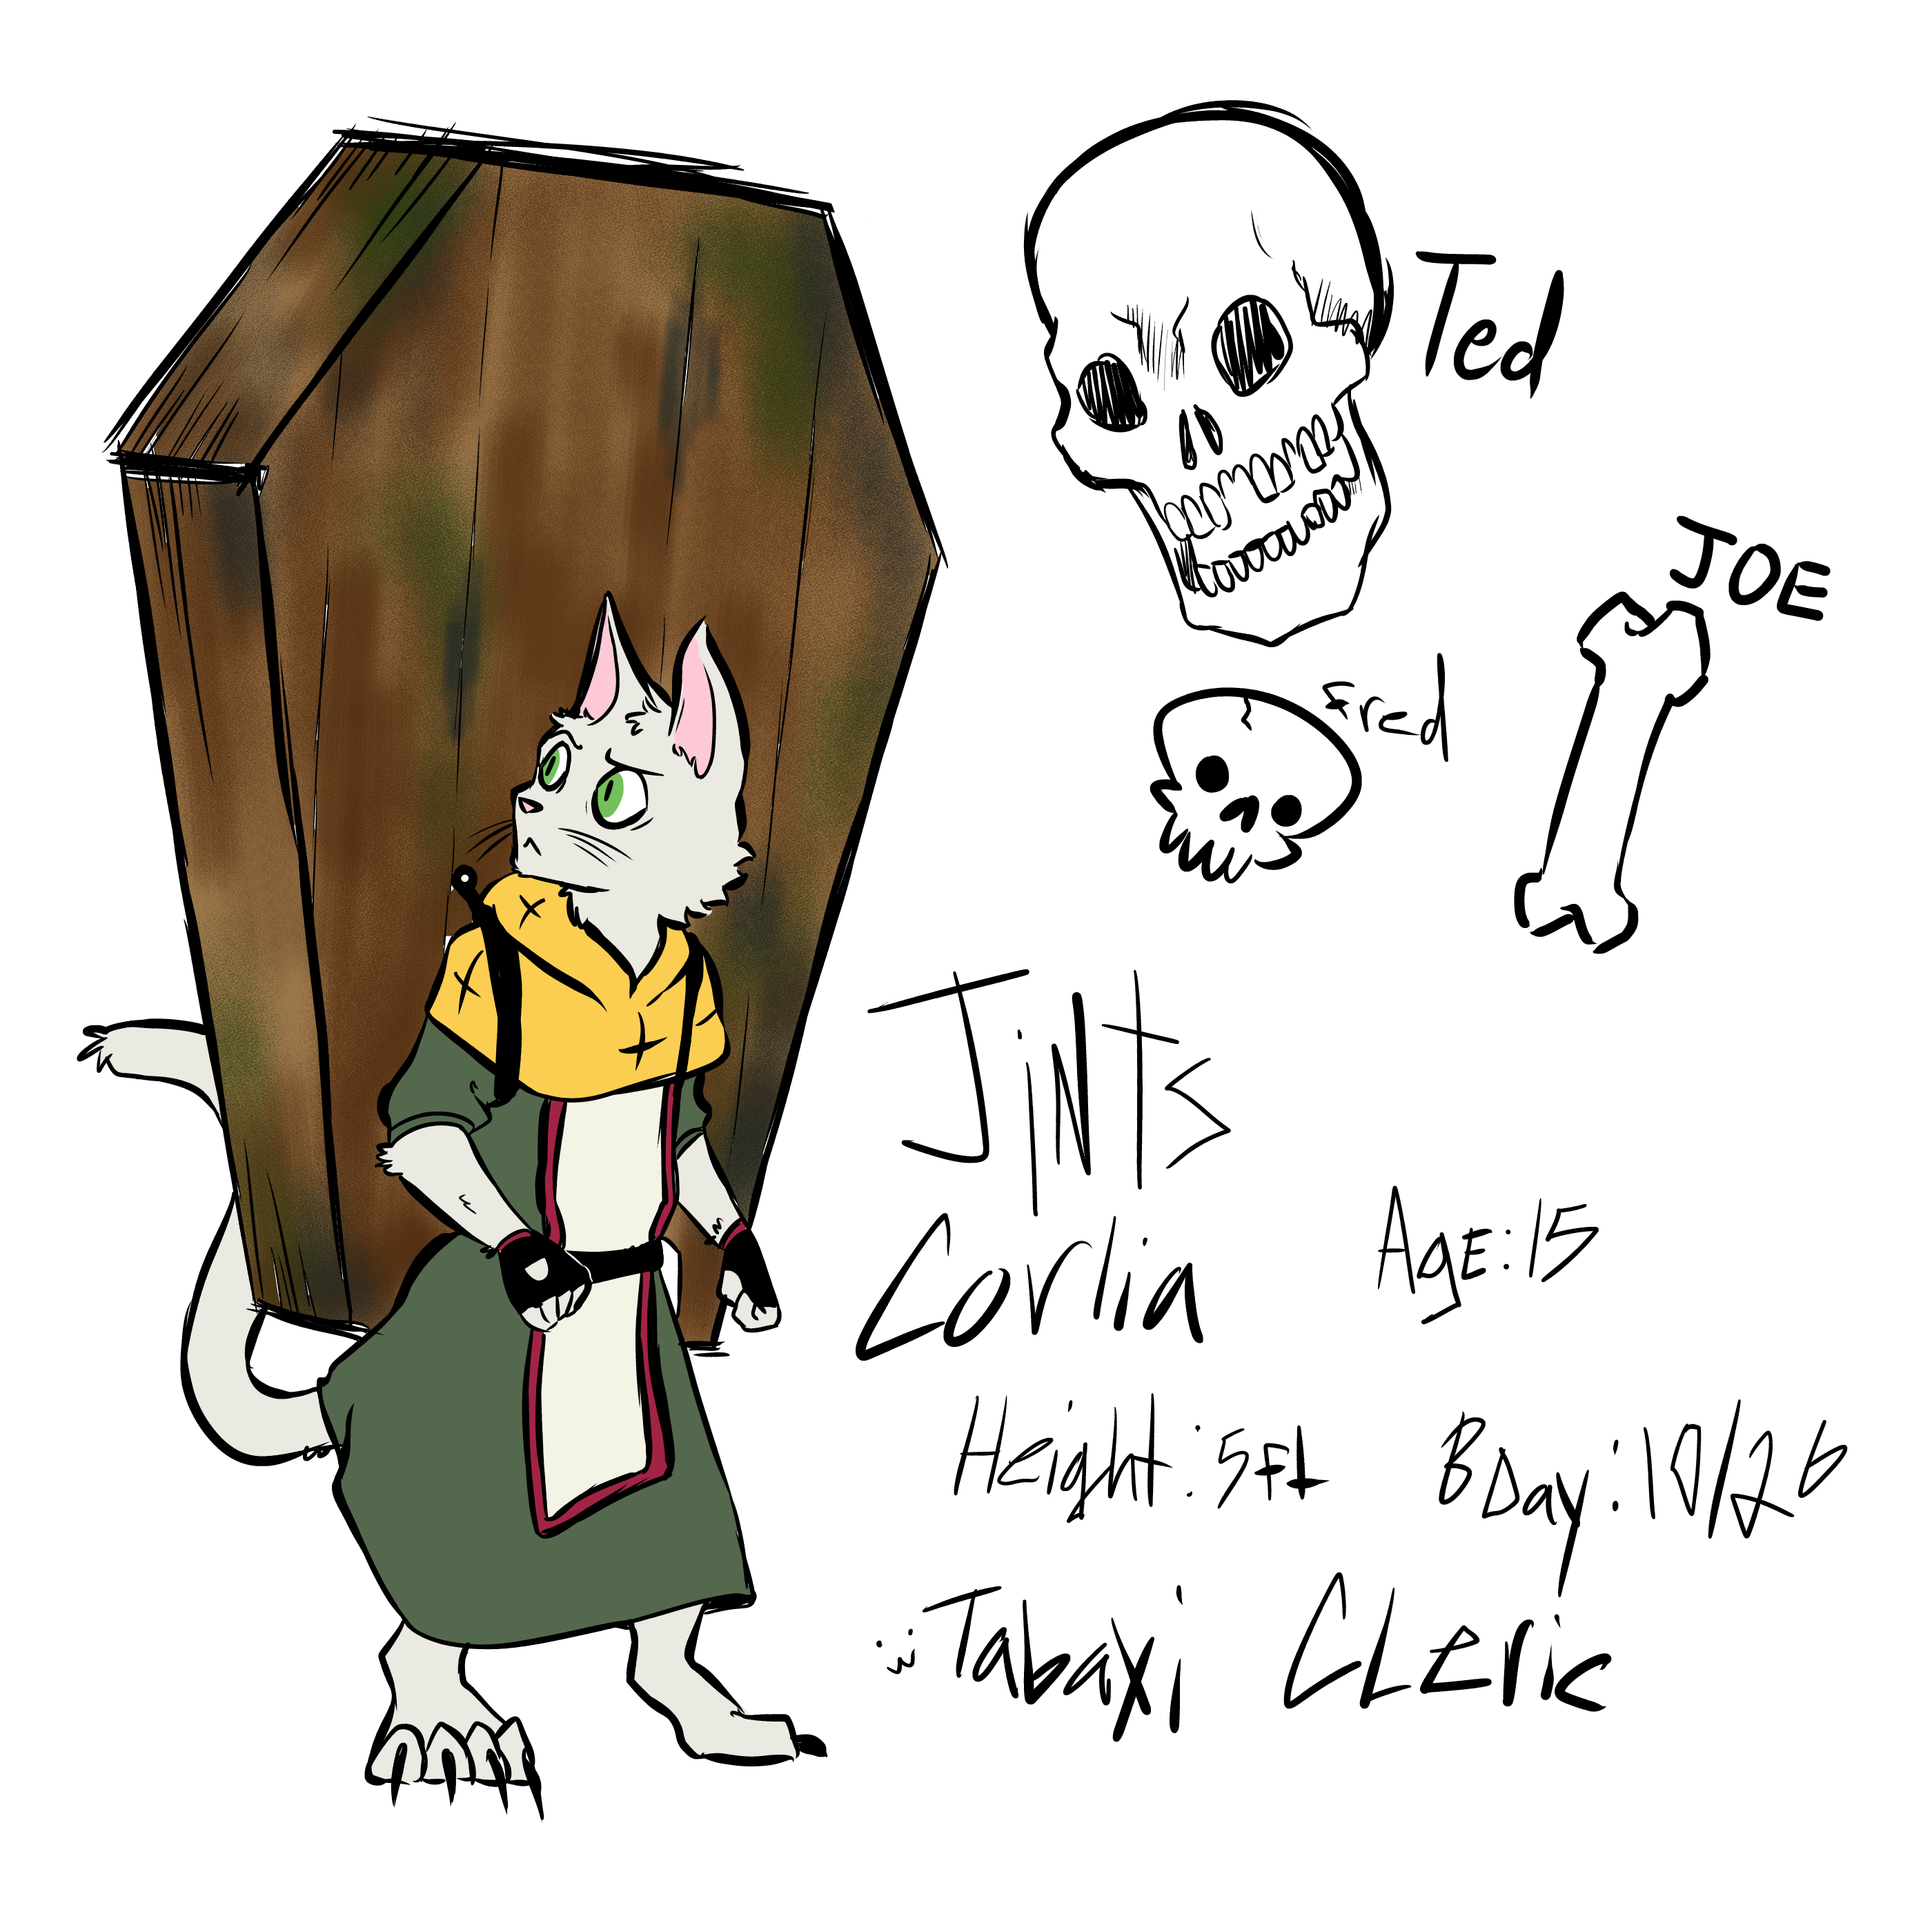 Ted
JOE
Fred
Jints
Corlia
Age:15
Height:5ft
BDay:10/26
Tabaxi Cleric